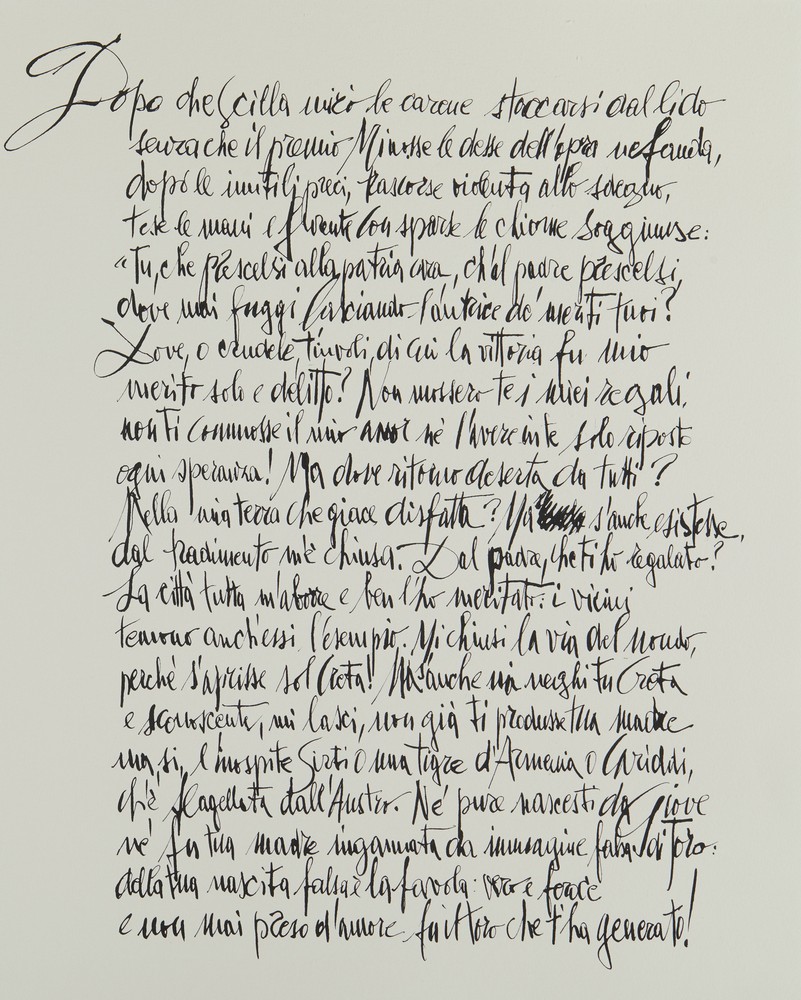 Dopo che Scilla mirò le carene staccarsi dal lido
senza che il premio Minosse le desse dell'opra nefanda,
dopo le inutili preci, trascorse violenta allo sdegno,
tese le mani e furente con sparse le chiome soggiunse:
“Tu, che prescelsi alla patria cara, ch'al padre prescelsi,
dove mai fuggi lasciando l'autrice de' meriti tuoi?
Dove, o crudele, t'involi, di cui la vittoria fu mio
merito solo e delitto? Non mossero te i miei regali,
non ti commosse il mio amor né l'avere in te solo riposto
ogni speranza! Ma dove ritorno deserta da tutti?
Nella mia terra che giace disfatta? Ma s'anche esistesse,
dal tradimento m'è chiusa. Dal padre, che ti ho regalato?
La città tutta m'aborre e ben l'ho meritato: i vicini
temono anch'essi l'esempio. Mi chiusi la via del mondo,
perché s'aprisse sol Creta! Ma s'anche mi neghi tu Creta
e sconoscente, mi lasci, non già ti produsse tua madre
ma, sì, l'inospite Sirti o una tigre d'Armenia o Cariddi,
ch'è flagellata dall'Austro. Né pure nascesti da Giove
né fu tua madre ingannata da immagine falsa di Toro:
della tua nascita falsa è la favola: vero e feroce
e non mai preso d'amore fu il toro che t'ha generato!